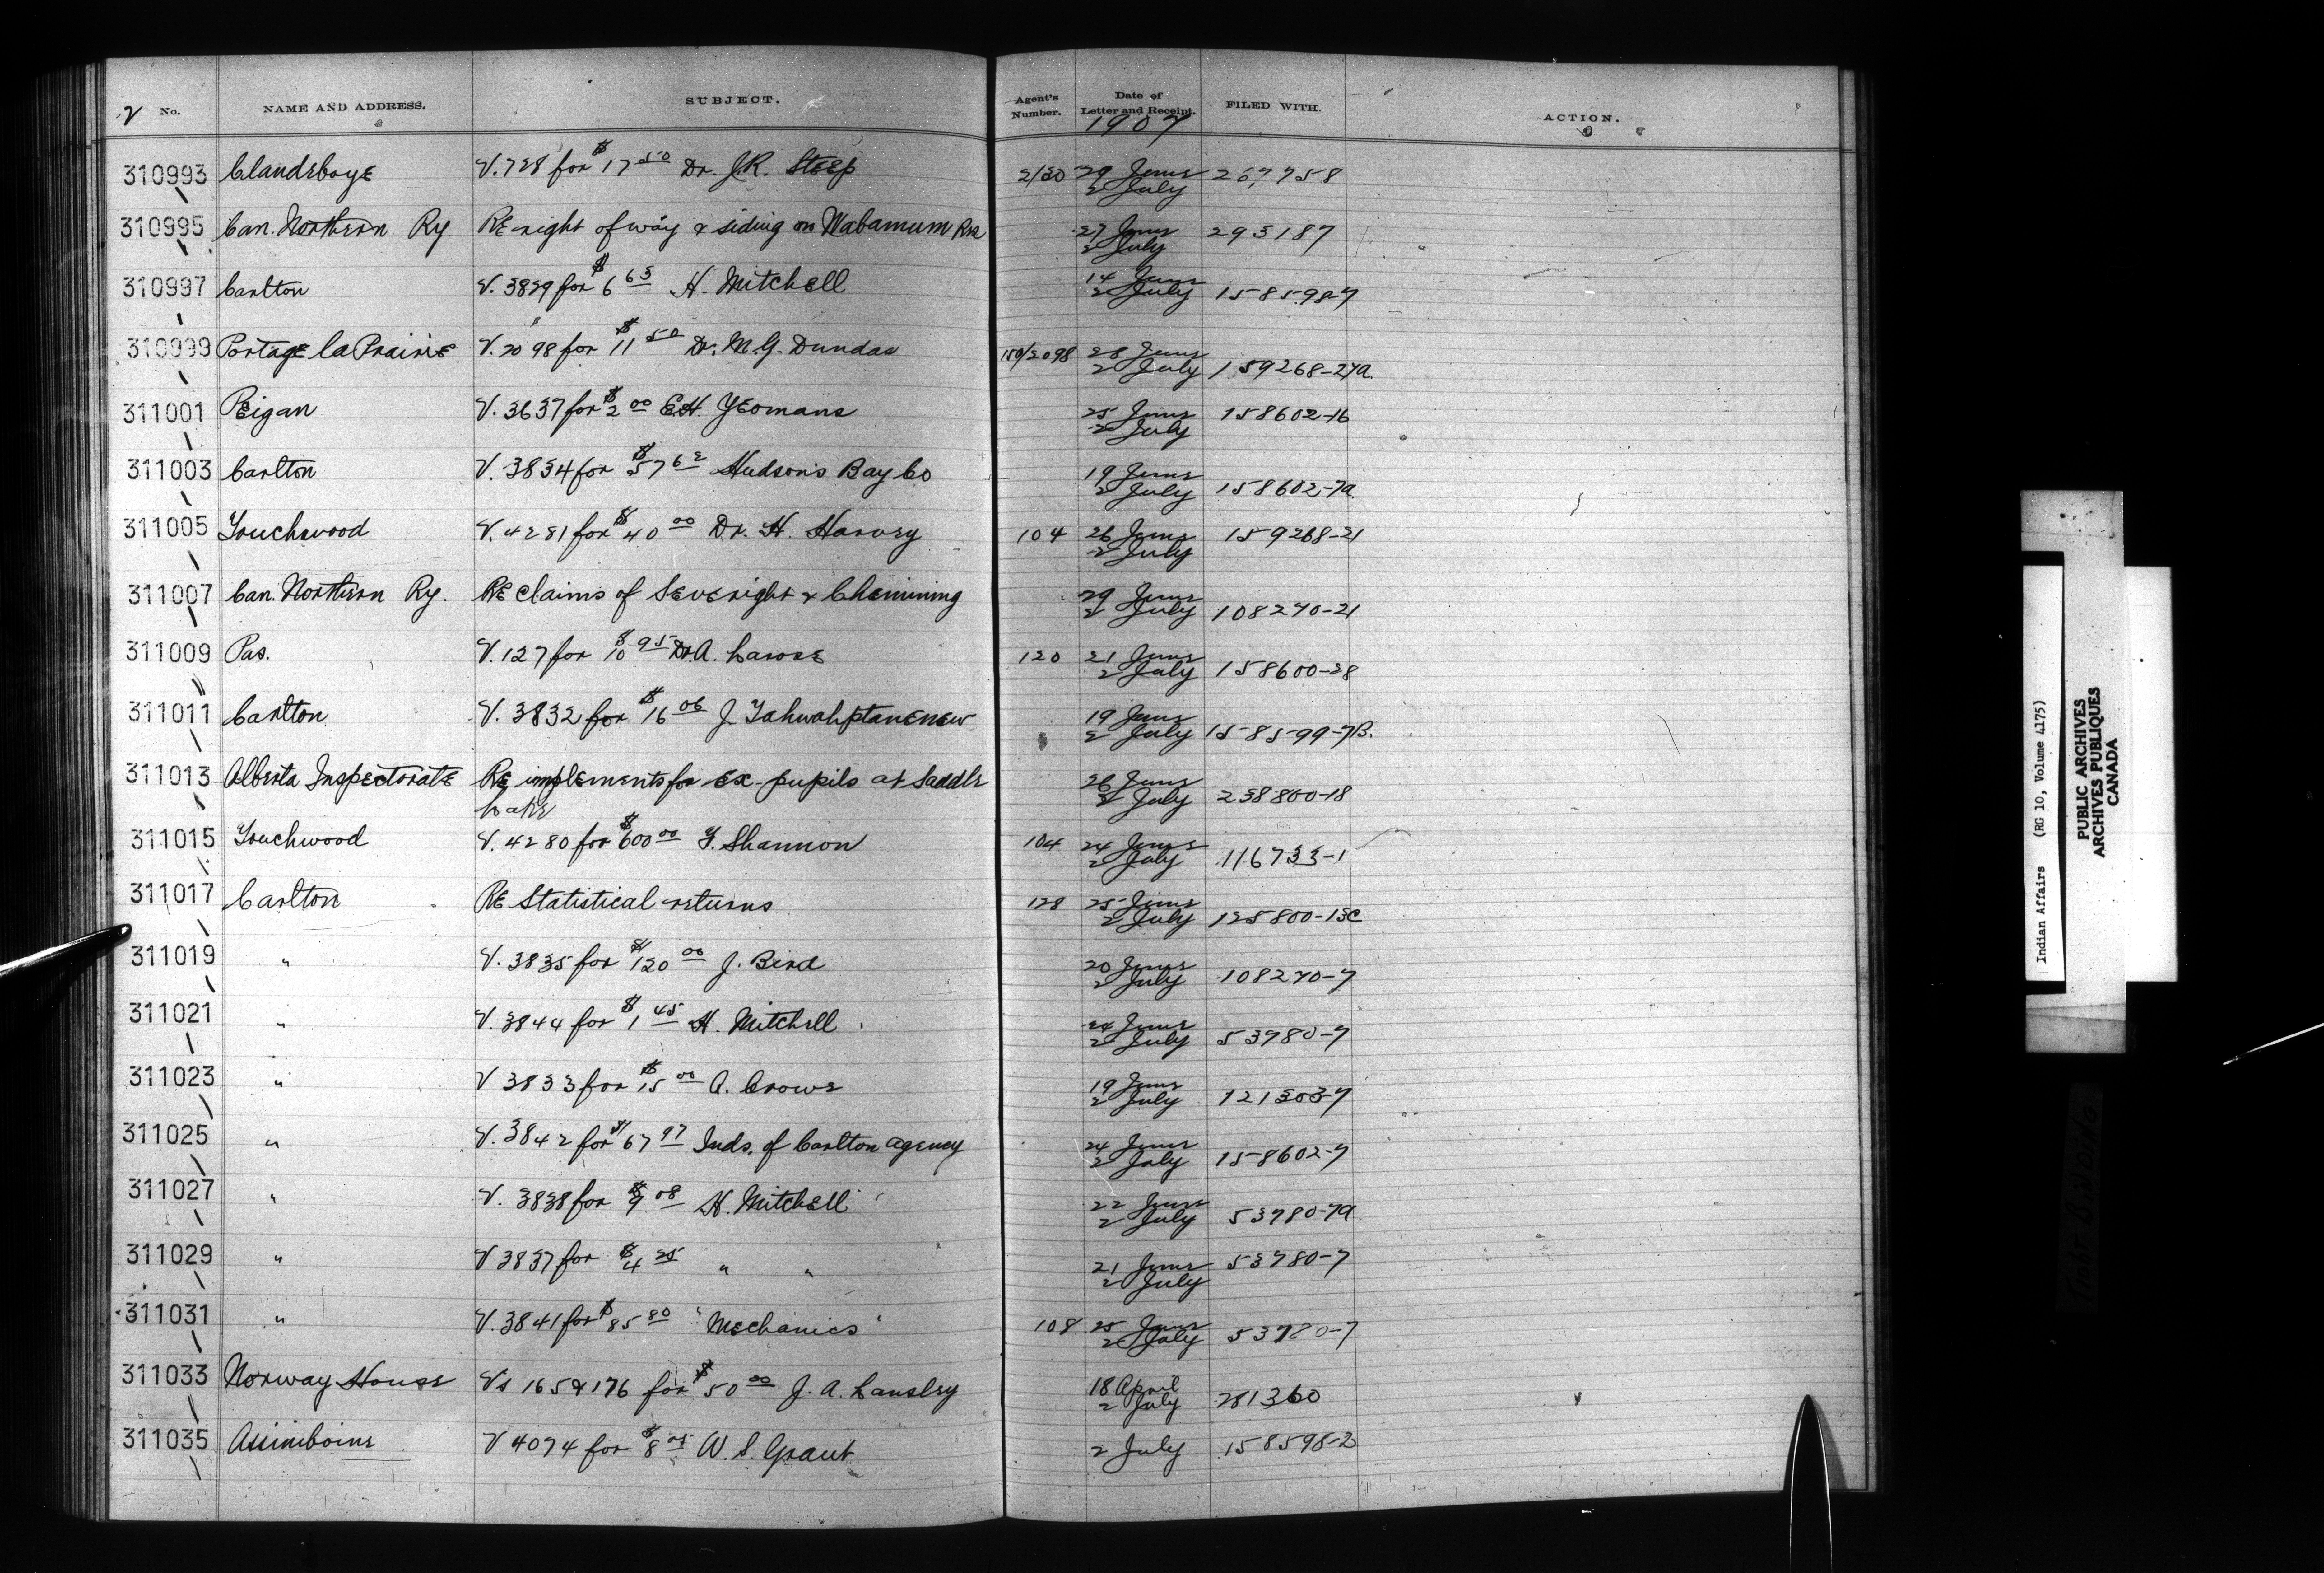 2 No. NAME AND ADDRESS. SUBJECT. Agent's Number. Date of Letter and Receipt. FILED WITH. ACTION.
1907
310993 Clandeboye V. 728 for $17 50 Dr. J.R. Steep 2/30 29 June 267758
2 July
310995 Can. Northern Ry. RE right of way & siding on Wabamum Res 27 June 295187
2 July
310997 Carlton V. 3829 for $6 65 H. Mitchell 14 June
2 July 158598-7
310999 Portage la Prairie V. 2098 for $11 50 Dr. M.G. Dundas 150/2098 28 June
2 July 159268-27a.
311001 Peigan V. 3637 for $2 00 E.H. Yeomans 25 June 158602-16
2 July
311003 Carlton V. 3834 for $57 62 Hudson's Bay Co 19 June
2 July 158602-7a
311005 Touchwood V. 4281 for $40 00 Dr. H. Harvey 104 26 June 159268-21
2 July
311007 Can. Northern Ry. RE claims of Severight & Chemining 29 June
2 July 108270-21
311009 Pas. V. 127 for $10 95 Dr A. Larose 120 21 June
2 July 158600-28
311011 Carlton V. 3832 for $16 06 J. Tahwahptanenew 19 June
2 July 158599-7B.
311013 Alberta Inspectorate RE implements for ex-pupils at Saddle 26 June
Lake 2 July 238800-18
311015 Touchwood V. 4280 for $600 00 T. Shannon 104 24 June
2 July 116733-1
311017 Carlton RE Statistical returns 128 25 June
2 July 125800-13c
311019 " V. 3835 for $120 00 J. Bird 20 June
2 July 108270-7
311021 " V. 3844 for $1 45 H. Mitchell 24 June
2 July 53780-7
311023 " V 3833 for $15 00 A. Crowe 19 June
2 July 121303-7
311025 " V. 3842 for $67 97 Inds. of Carlton agency 24 June
2 July 158602-7
311027 " V. 3838 for $9 08 H. Mitchell 22 June
2 July 53780-7a
311029 " V 3837 for $4 25 " " 21 June 53780-7
2 July
311031 " V. 3841 for $85 80 "Mechanics" 108 25 June
2 July 53780-7
311033 Norway House Vs 165 & 176 for $50 00 J. A. Lansley 18 April
2 July 281360
311035 Assiniboine V 4074 for $8 W. S. Grant 2 July 158598-2
Indian Affairs (RG 10, Volume 4175)
PUBLIC ARCHIVES
ARCHIVES PUBLIQUES
CANADA